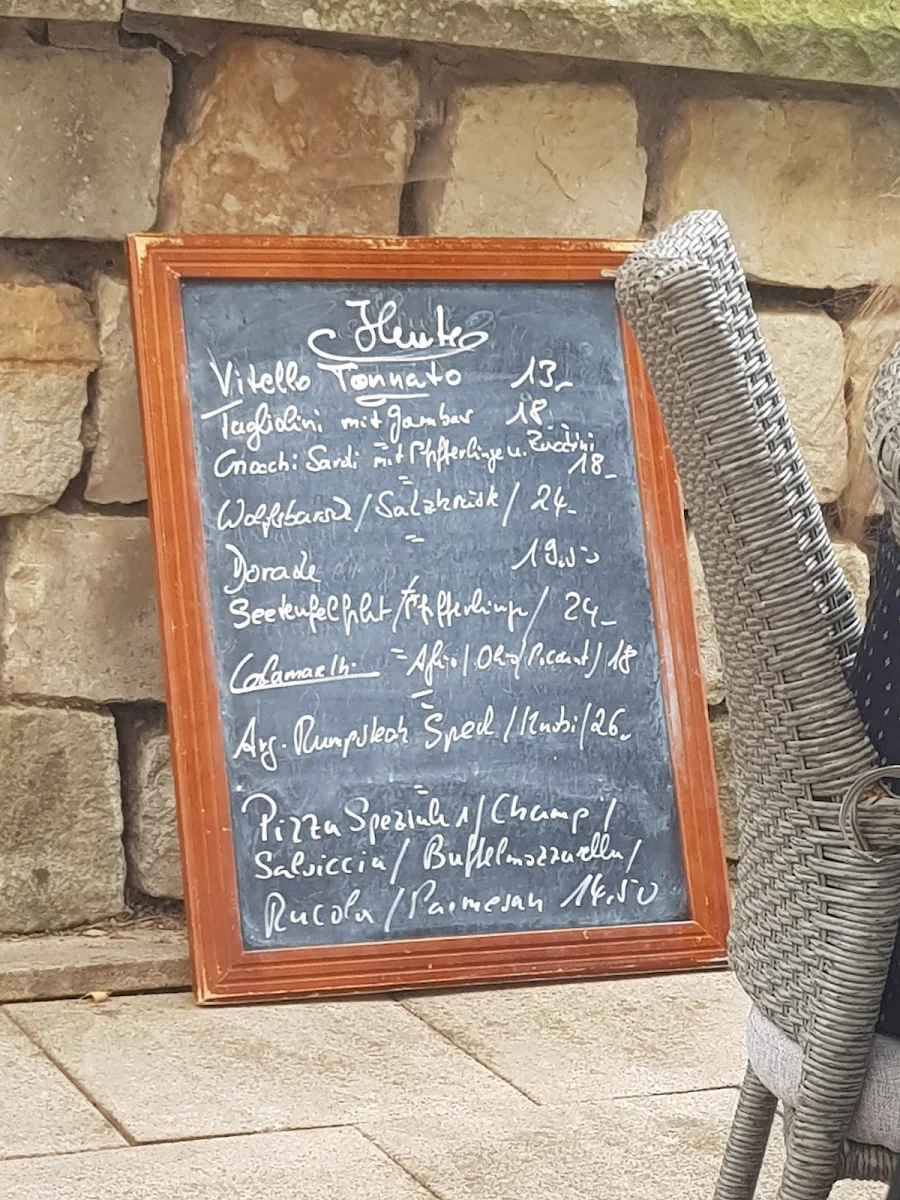 Heute
Vitello Tonnato 13,-
Tagliolini mit Gambas 18
Gnocchi Sardi mit Pfifferlinge u. Zucchini
18,-
Wolfsbarsch / Salzkruste / 24,-
Dorade 19.50
Seeteufelfilet / Pfifferlinge / 24,-
Calamaretti Aglio / Olio / Picant / 18
Arg. Rumpsteak Speck / Knobi / 26,-
Pizza Speziale 1 / Champ /
Salsiccia / Büffelmozzarella /
Rucola / Parmesan 14.50